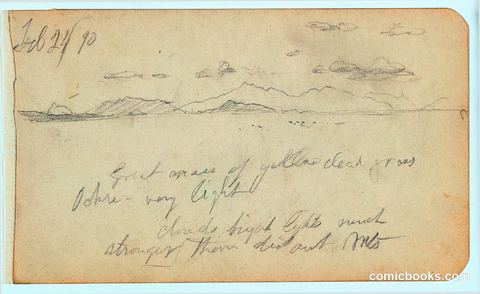 Feb 21/90
Great mass of yellow dead grass
Ochre - very light
clouds bright light much
stronger than distant Mts
comicbooks.com